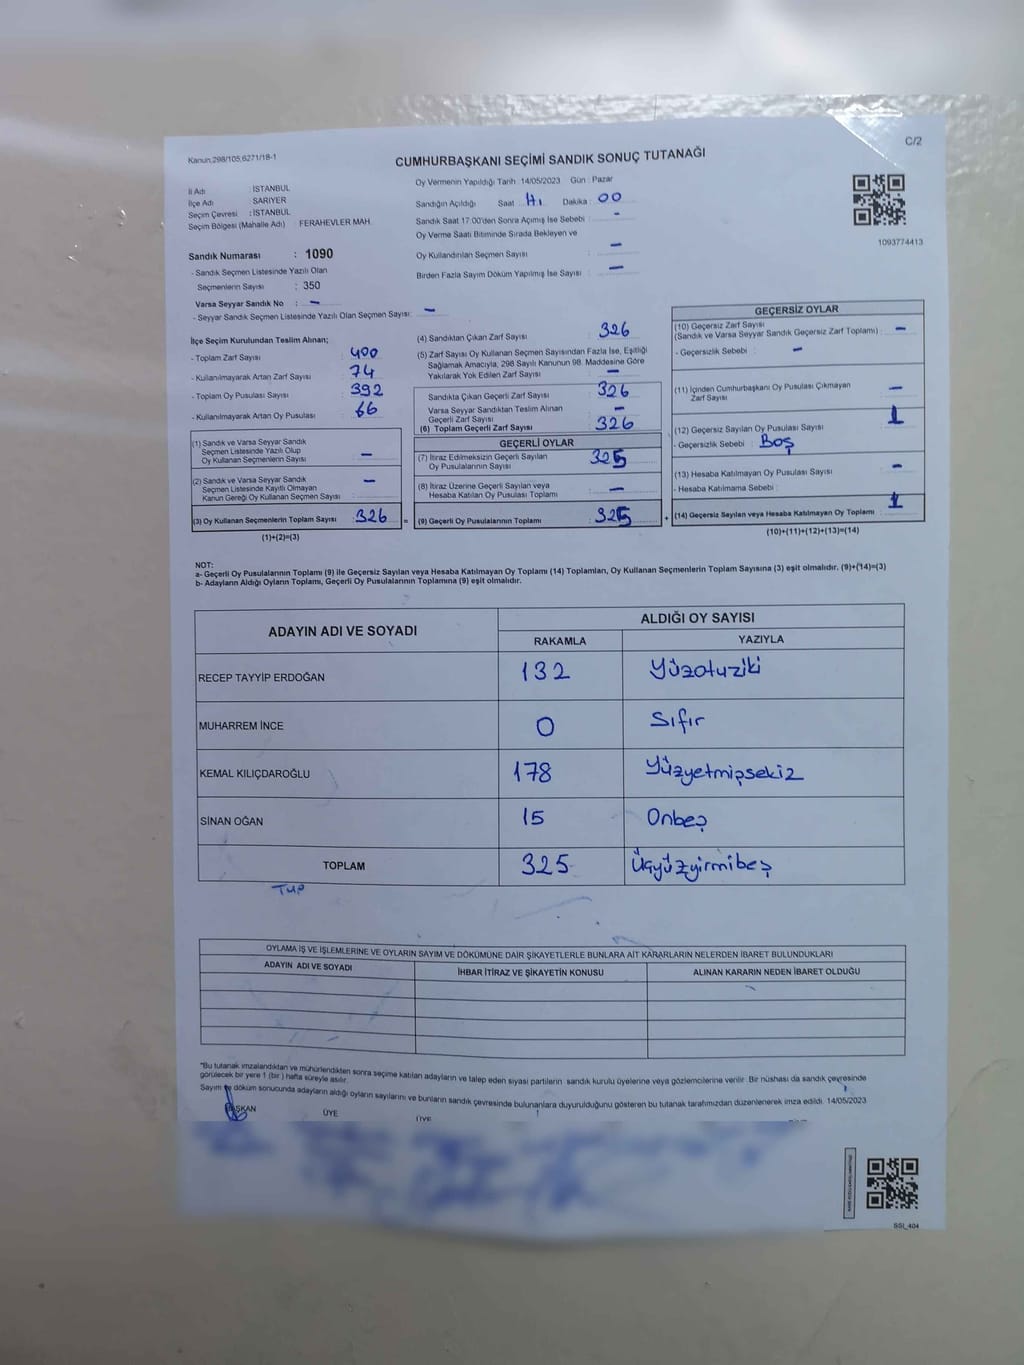 Kanun,298/105,6271/18-1
C/2
CUMHURBAŞKANI SEÇİMİ SANDIK SONUÇ TUTANAĞI
İl Adı : İSTANBUL
İlçe Adı : SARIYER
Seçim Çevresi : İSTANBUL
Seçim Bölgesi (Mahalle Adı) FERAHEVLER MAH.
Sandık Numarası : 1090
- Sandık Seçmen Listesinde Yazılı Olan
Seçmenlerin Sayısı : 350
Varsa Seyyar Sandık No : -
- Seyyar Sandık Seçmen Listesinde Yazılı Olan Seçmen Sayısı: -
Oy Vermenin Yapıldığı Tarih :14/05/2023 Gün : Pazar
Sandığın Açıldığı Saat Dakika : 00
Sandık Saat 17:00'den Sonra Açılmış İse Sebebi : -
Oy Verme Saati Bitiminde Sırada Bekleyen ve
Oy Kullandırılan Seçmen Sayısı : -
Birden Fazla Sayım Döküm Yapılmış İse Sayısı : -
1093774413
İlçe Seçim Kurulundan Teslim Alınan;
- Toplam Zarf Sayısı : 400
- Kullanılmayarak Artan Zarf Sayısı : 74
- Toplam Oy Pusulası Sayısı : 392
- Kullanılmayarak Artan Oy Pusulası : 66
(1) Sandık ve Varsa Seyyar Sandık
Seçmen Listesinde Yazılı Olup
Oy Kullanan Seçmenlerin Sayısı : -
(2) Sandık ve Varsa Seyyar Sandık
Seçmen Listesinde Kayıtlı Olmayan
Kanun Gereği Oy Kullanan Seçmen Sayısı : -
(3) Oy Kullanan Seçmenlerin Toplam Sayısı : 326 =
(1)+(2)=(3)
(4) Sandıktan Çıkan Zarf Sayısı : 326
(5) Zarf Sayısı Oy Kullanan Seçmen Sayısından Fazla İse, Eşitliği
Sağlamak Amacıyla, 298 Sayılı Kanunun 98. Maddesine Göre
Yakılarak Yok Edilen Zarf Sayısı : -
Sandıkta Çıkan Geçerli Zarf Sayısı : 326
Varsa Seyyar Sandıktan Teslim Alınan
Geçerli Zarf Sayısı : -
(6) Toplam Geçerli Zarf Sayısı : 326
GEÇERLİ OYLAR
(7) İtiraz Edilmeksizin Geçerli Sayılan
Oy Pusulalarının Sayısı : 325
(8) İtiraz Üzerine Geçerli Sayılan veya
Hesaba Katılan Oy Pusulası Toplamı : -
(9) Geçerli Oy Pusulalarının Toplamı : 325 +
GEÇERSİZ OYLAR
(10) Geçersiz Zarf Sayısı
(Sandık ve Varsa Seyyar Sandık Geçersiz Zarf Toplamı) : -
- Geçersizlik Sebebi : -
(11) İçinden Cumhurbaşkanı Oy Pusulası Çıkmayan
Zarf Sayısı : -
(12) Geçersiz Sayılan Oy Pusulası Sayısı : 1
- Geçersizlik Sebebi : Boş
(13) Hesaba Katılmayan Oy Pusulası Sayısı : -
- Hesaba Katılmama Sebebi :
(14) Geçersiz Sayılan veya Hesaba Katılmayan Oy Toplamı : 1
(10)+(11)+(12)+(13)=(14)
NOT:
a- Geçerli Oy Pusulalarının Toplamı (9) ile Geçersiz Sayılan veya Hesaba Katılmayan Oy Toplamı (14) Toplamları, Oy Kullanan Seçmenlerin Toplam Sayısına (3) eşit olmalıdır. (9)+(14)=(3)
b- Adayların Aldığı Oyların Toplamı, Geçerli Oy Pusulalarının Toplamına (9) eşit olmalıdır.
ADAYIN ADI VE SOYADI ALDIĞI OY SAYISI
RAKAMLA YAZIYLA
RECEP TAYYİP ERDOĞAN 132 Yüzotuziki
MUHARREM İNCE 0 Sıfır
KEMAL KILIÇDAROĞLU 178 Yüzyetmişsekiz
SİNAN OĞAN 15 Onbeş
TOPLAM 325 Üçyüzyirmibeş
OYLAMA İŞ VE İŞLEMLERİNE VE OYLARIN SAYIM VE DÖKÜMÜNE DAİR ŞİKAYETLERLE BUNLARA AİT KARARLARIN NELERDEN İBARET BULUNDUKLARI
ADAYIN ADI VE SOYADI İHBAR İTİRAZ VE ŞİKAYETİN KONUSU ALINAN KARARIN NEDEN İBARET OLDUĞU
*Bu tutanak imzalandıktan ve mühürlendikten sonra seçime katılan adayların ve talep eden siyasi partilerin sandık kurulu üyelerine veya gözlemcilerine verilir. Bir nüshası da sandık çevresinde
görülecek bir yere 1 (bir) hafta süreyle asılır.
Sayım ve döküm sonucunda adayların aldığı oyların sayılarını ve bunların sandık çevresinde bulunanlara duyurulduğunu gösteren bu tutanak tarafımızdan düzenlenerek imza edildi. 14/05/2023
BAŞKAN ÜYE ÜYE
SSI_404